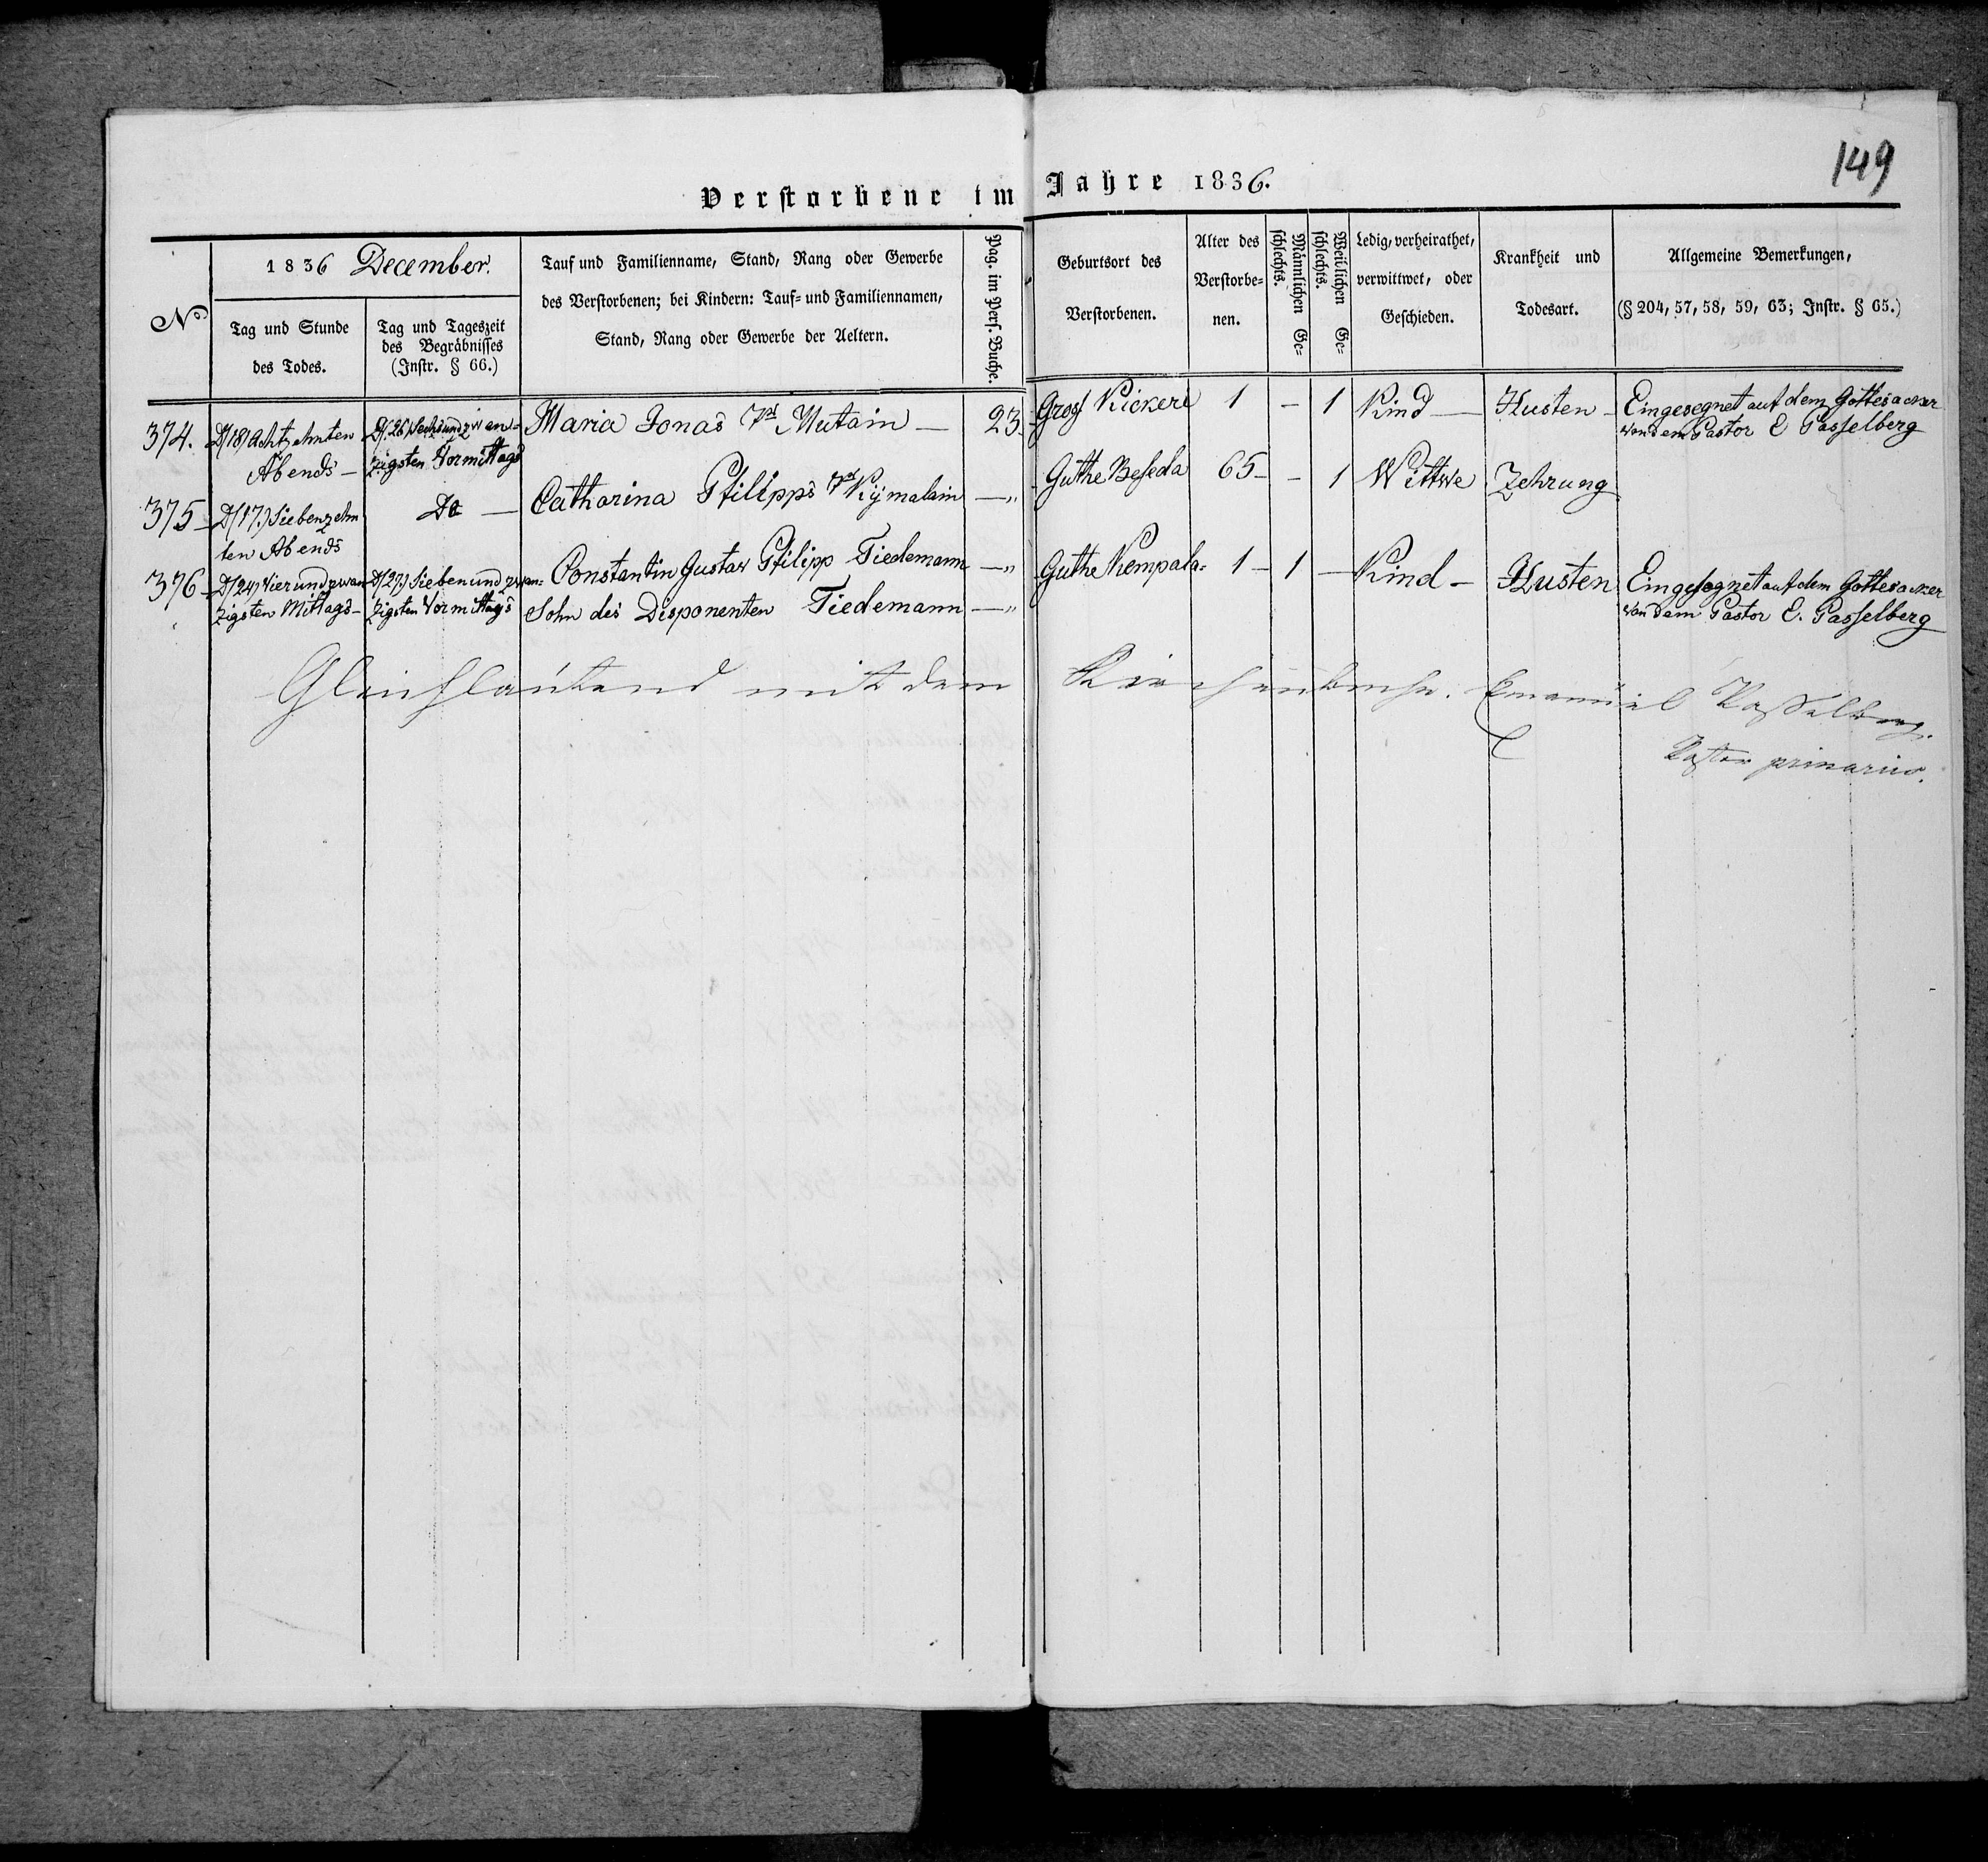 149
Verstorbene im Jahre 1836.
No
1836 December.
Tag und Stunde
des Todes.
Tag und Tageszeit
des Begräbnisses
(Instr. § 66.)
Tauf und Familienname, Stand, Rang oder Gewerbe
des Verstorbenen; bei Kindern: Tauf- und Familiennamen,
Stand, Rang oder Gewerbe der Aeltern.
Pag. im Pers. Buche.
Geburtsort des
Verstorbenen.
Alter des
Verstorbe-
nen.
Männlichen Ge-
schlechts.
Weiblichen Ge-
schlechts.
Ledig, verheirathet,
verwittwet, oder
Geschieden.
Krankheit und
Todesart.
Allgemeine Bemerkungen,
(§ 204, 57, 58, 59, 63; Instr. § 65.)
374. D/18) Achtzehnten Abends – D/26) Sechsundzwen-zigsten Vormittags Maria Jonas Mutain — 23. Gross Kickere 1 – 1 Kind — Husten – Eingesegnet auf dem Gottesacker von dem Pastor E Passelberg
375 – D/17.) Siebenzehn ten Abends Do — Catharina Philipps Kÿmalain —„ Guthe Beseda 65 – – 1 Wittwe Zehrung
376 – D/24) Vierundzwan zigsten Mittags – D/27.) Siebenundzwan= zigsten Vormittags Constantin Gustav Philipp Tiedemann —„ Guthe Kempala. 1 – 1 – Kind – Husten Eingesegnet auf dem Gottesacker
Sohn des Disponenten Tiedemann —„ von dem Pastor E. Passelberg
Gleichlautend mit dem Kirchenbuche. Emanuel Passelberg.
Pastor primarius.